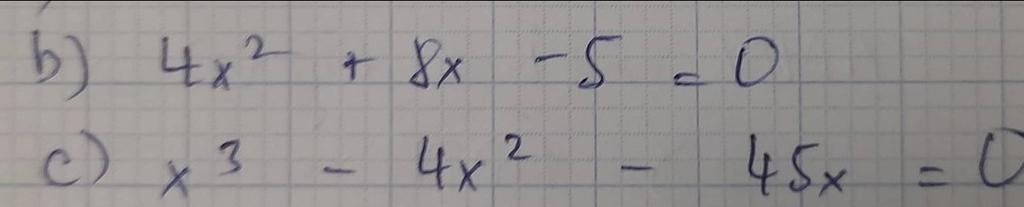 b) 4x² + 8x - 5 = 0
c) x³ - 4x² - 45x = 0